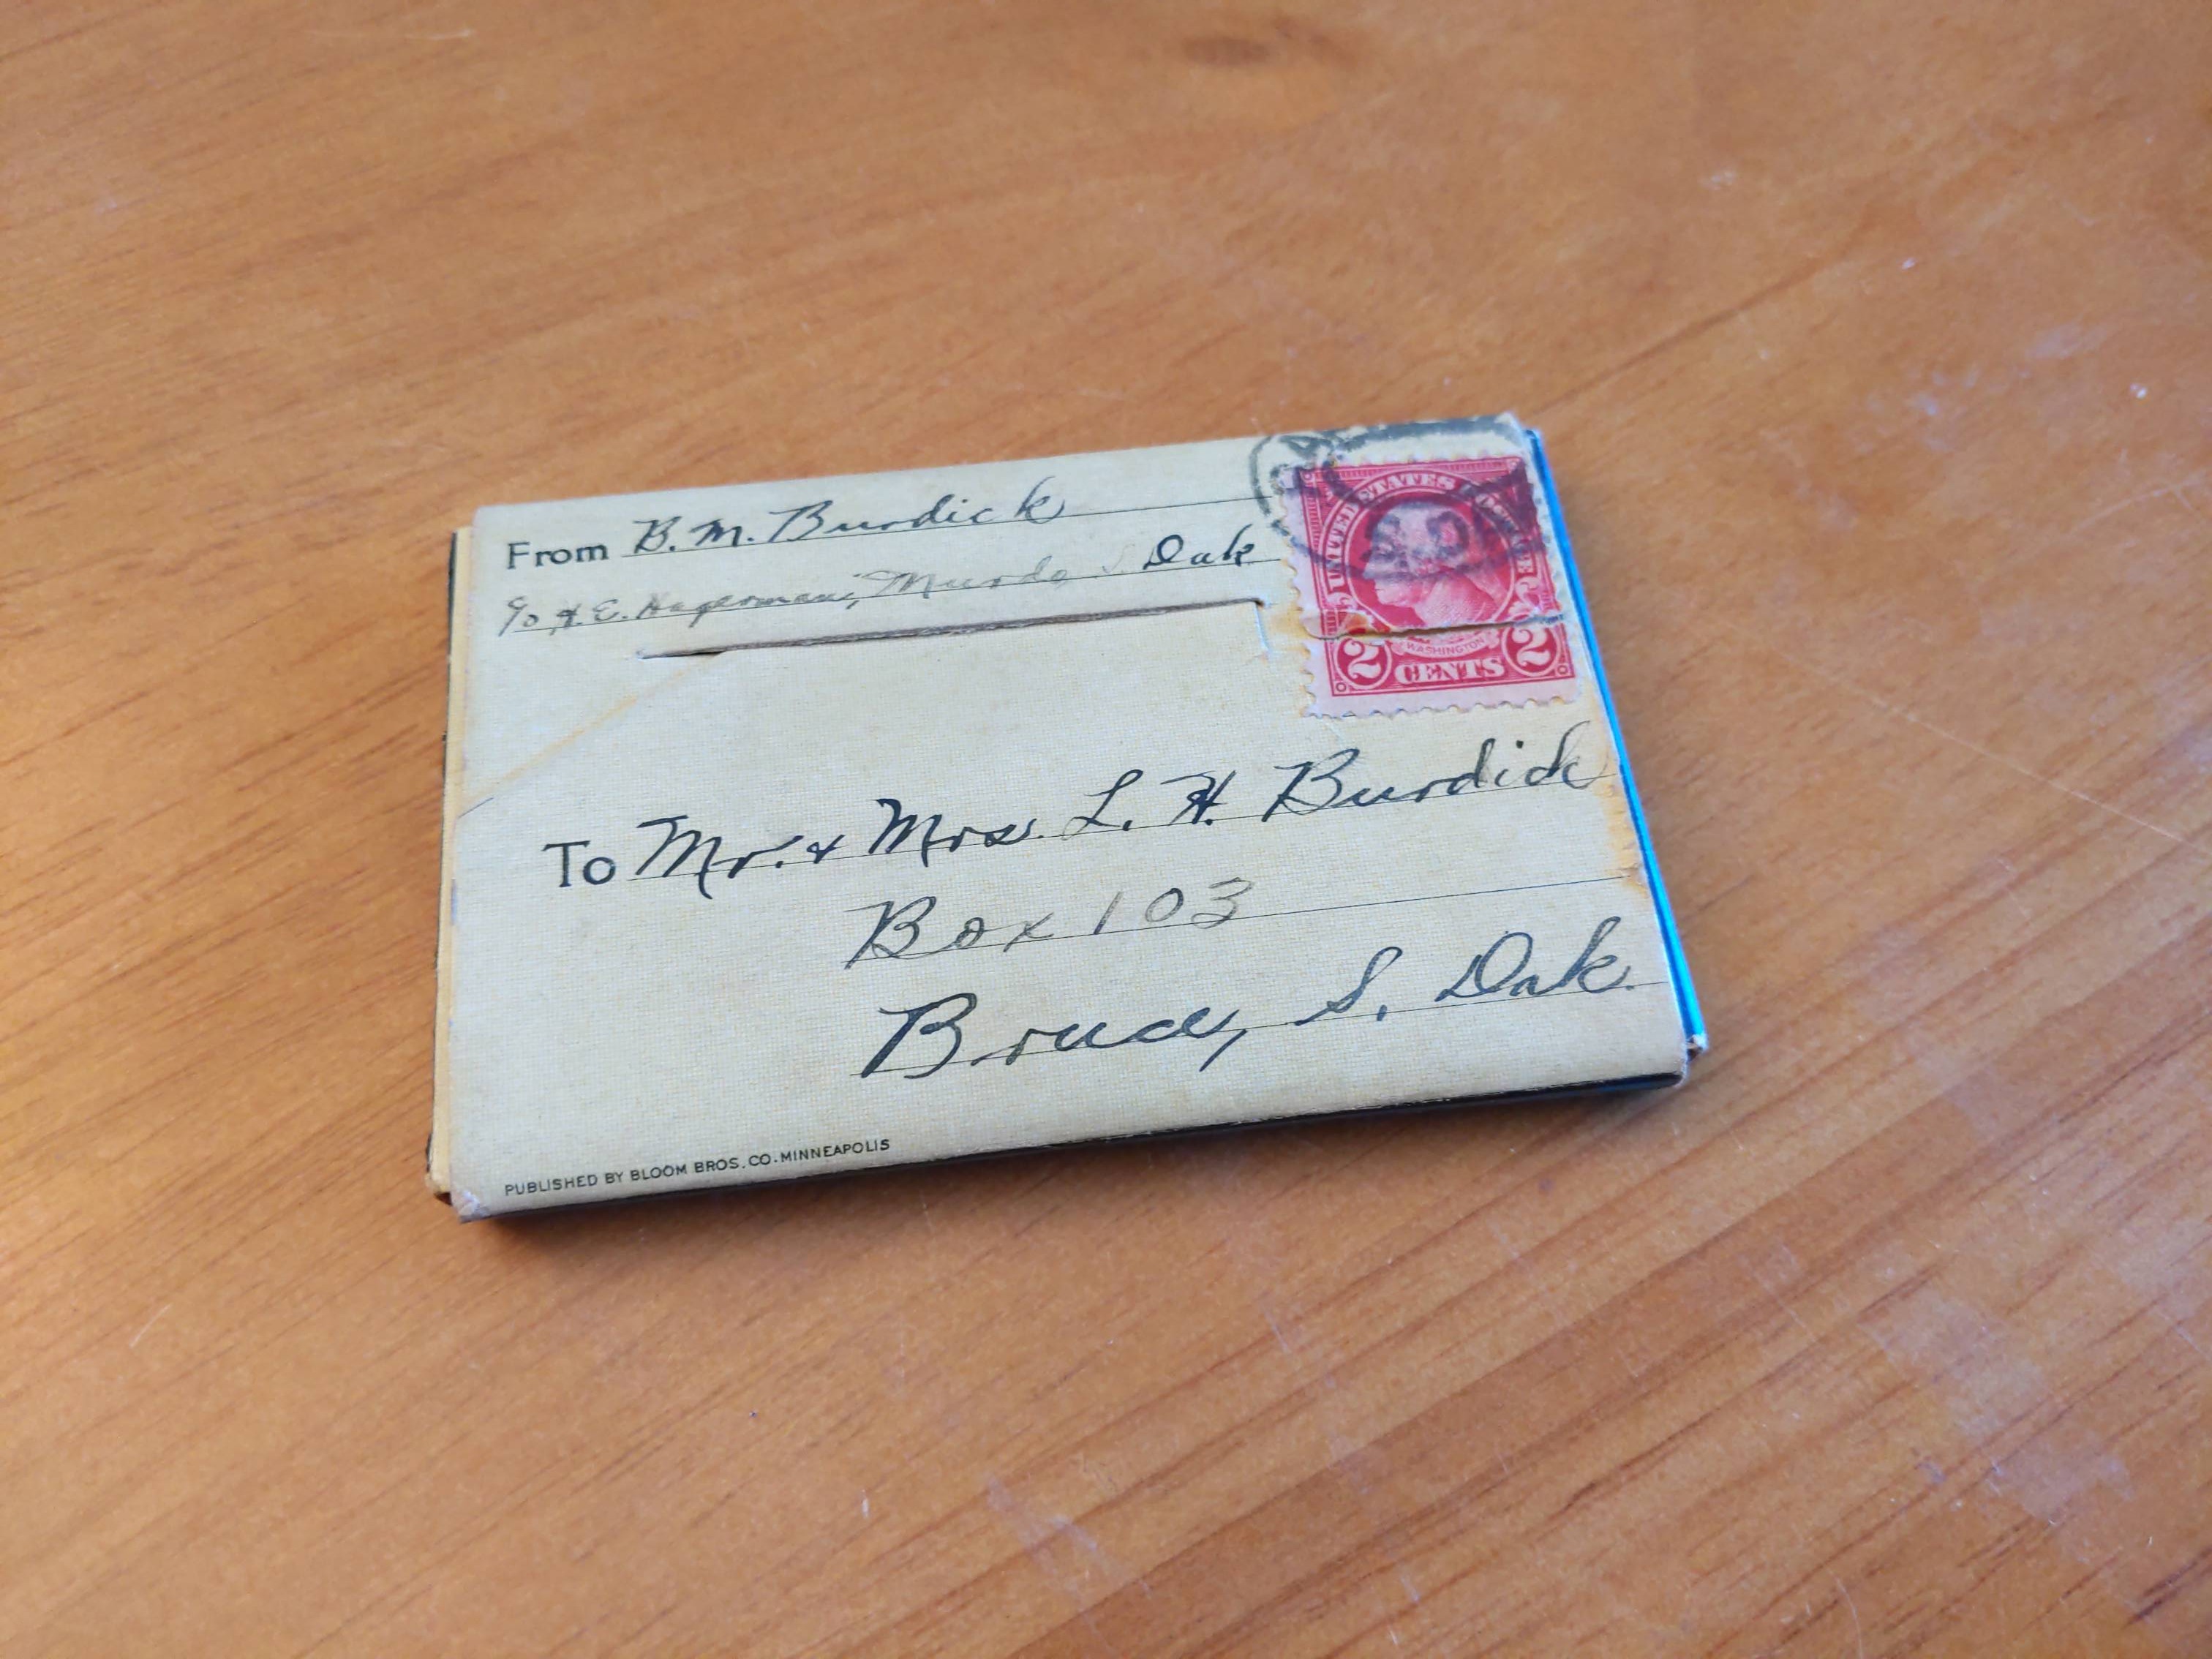 From B. M. Burdick
c/o H. E. Hagerman, Murdo S. Dak
UNITED STATES POSTAGE
WASHINGTON
2 CENTS 2
To Mr. & Mrs. L. H. Burdick
Box 103
Bruce, S. Dak.
PUBLISHED BY BLOOM BROS. CO. MINNEAPOLIS